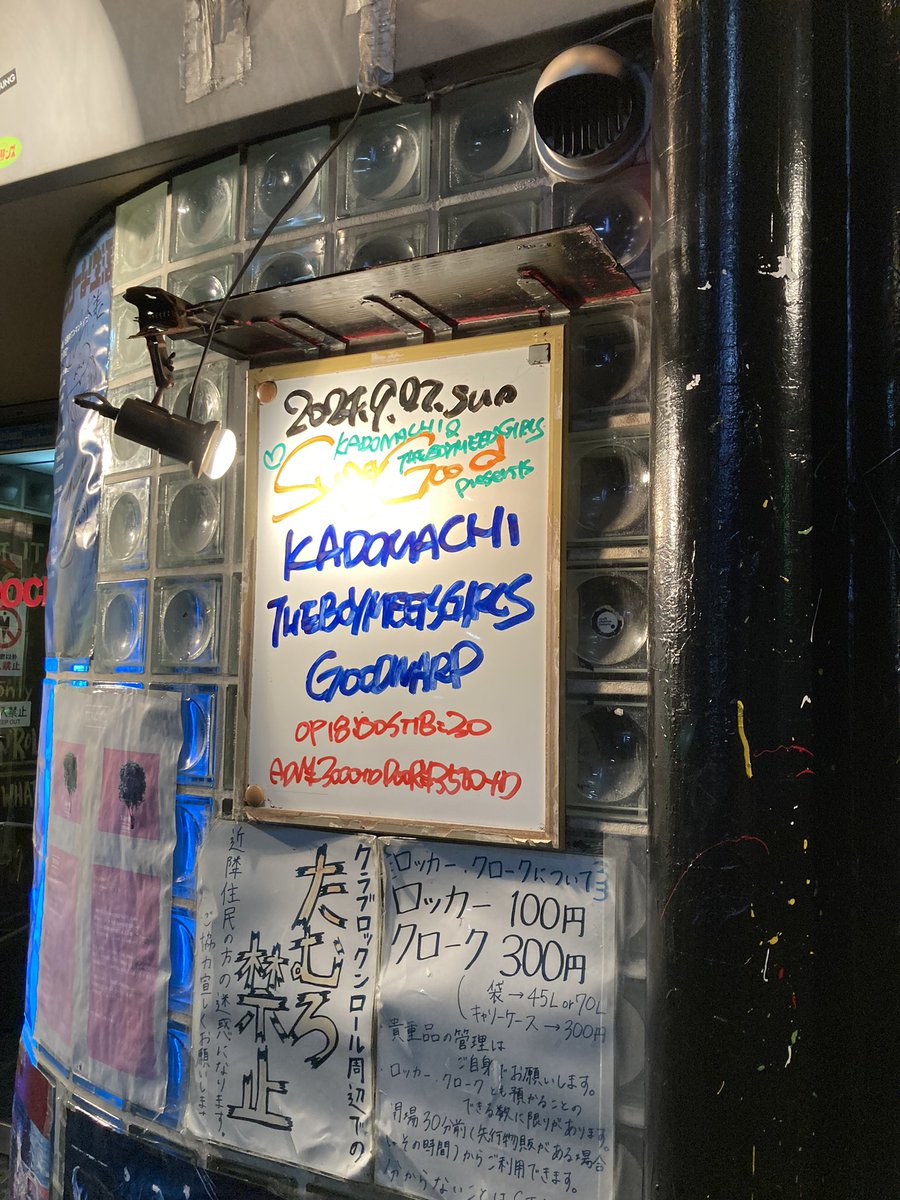 2024.9.22.sun
KADOMACHI &
THEBOYMEETSGIRLS
Super Good
presents
KADOMACHI
THEBOYMEETSGIRLS
GOODWARP
OP18:00 ST18:30
ADV¥3000+D DOOR¥3500+D
クラブロックンロール周辺での
たむろ
禁止
近隣住民の方の迷惑になります。
ご協力宜しくお願いします
ロッカー・クロークについて
ロッカー 100円
クローク 300円
(袋→45L or 70L
キャリーケース→300円
貴重品の管理は
ご自身でお願いします。
ロッカー・クロークとも預かることの
できる数に限りがあります。
開場30分前(先行物販がある場合
その時間)からご利用できます。